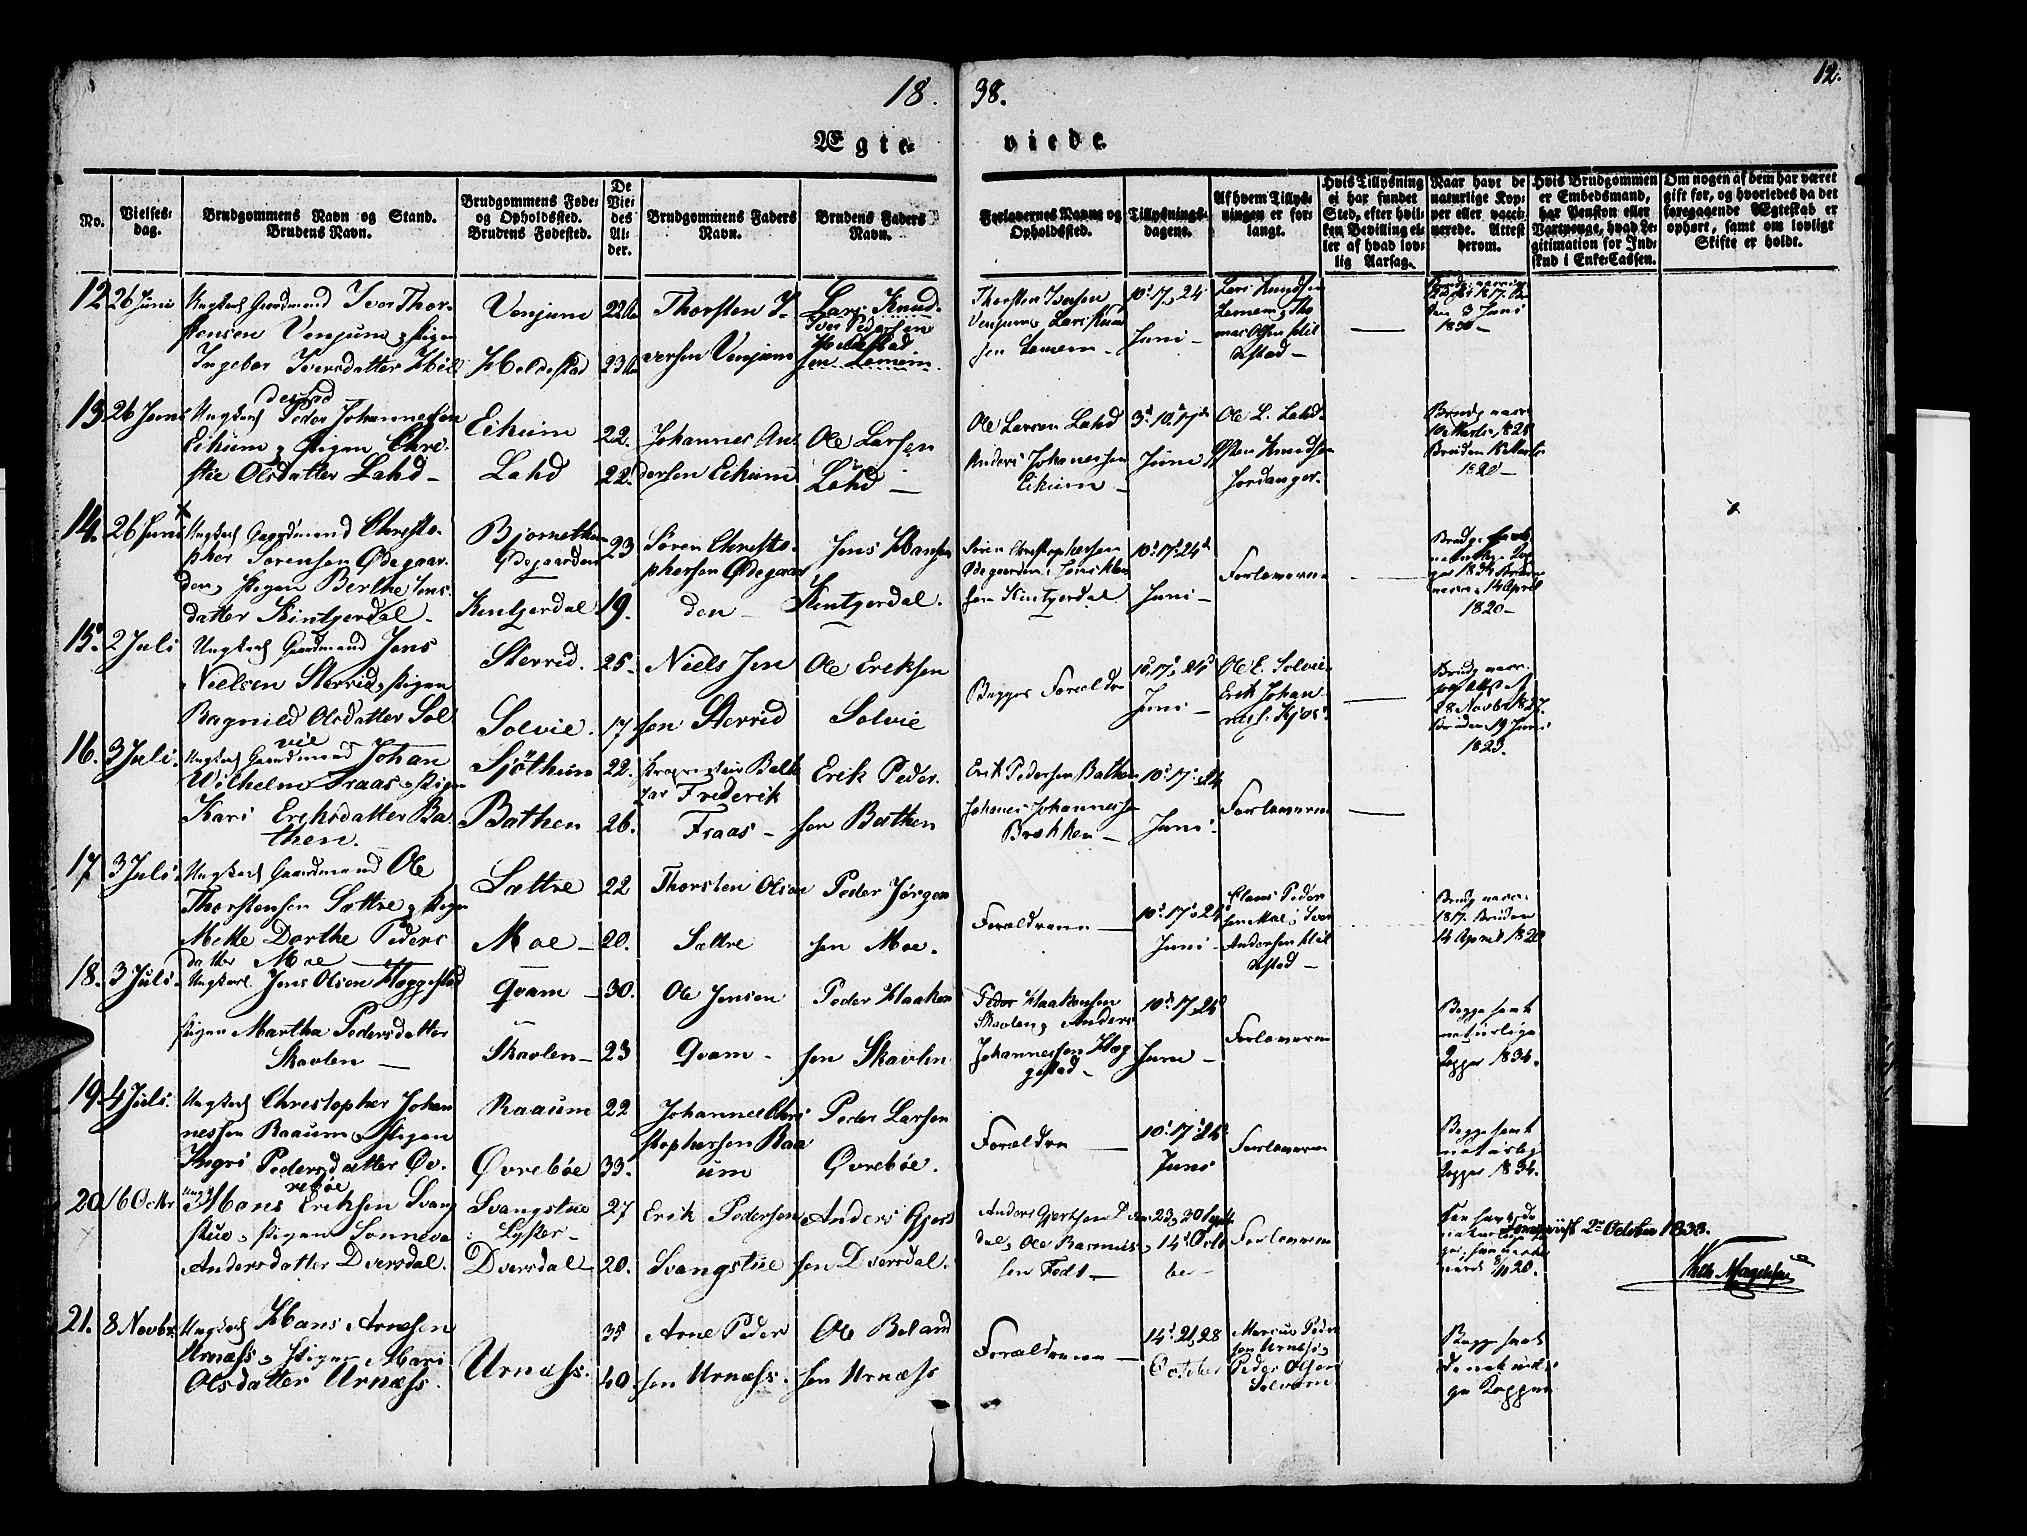 18. 38.
12.
Ægte- viede
No.
Vielses-
dag.
Brudgommens Navn og Stand.
Brudens Navn.
Brudgommens Føde-
og Opholdssted.
Brudens Fødested.
De
Vie-
des
Al-
der.
Brudgommens Faders
Navn.
Brudens Faders
Navn.
Forlovernes Navne og
Opholdssted.
Tillysnings-
dagene.
Af hvem Tillys-
ningen er for-
langt.
Hvis Tillysning
ei har fundet
Sted, efter hvil-
ken Bevilling el-
ler af hvad lov-
lig Aarsag.
Naar havt de
naturlige Kop-
per eller vacci-
nerede. Attest
derom.
Hvis Brudgommen
er Embedsmand,
har Pension eller
Vartpenge, hvad Le-
gitimation for Ind-
skud i Enke-Cassen.
Om nogen af dem har været
gift før, og hvorledes da det
foregagende Ægteskab er
ophørt, samt om lovligt
Skifte er holdt.
12 26 Juni
Ungkarl Gaardmand Iver Thor-
stensen Venjum, Pigen
Ingebor Iversdatter Hil
destad
Venjum
Heldestad
Thorsten I-
versen Venjum
Lars Knud-
Iver Pedersen
Hildestad
sen Lemein
Thorsten Iversen
Venjum, Lars Knud
sen
10. 17, 24
Juni -
Lars Knudsen
3 Juni
13 26 Juni
Ungkarl Peder Johannesen
Eikum, Pigen Chri-
stie Olsdatter Lahd -
Eikum
Lahd
22.
22.
Johannes An-
dersen Eikum
Ole Larsen
Lahd -
Ole Larsen Lahd
Anders Johannessen
Eikum -
3. 10. 17
Juni
Ole L. Lahd.
Knudsen
Jordanger.
1820 -
14. 26 Juni
Ungkarl Gaardmand Christo-
pher Sørensen Ødegaar-
den, Pigen Berthe Jens-
datter Kintjerdal.
Ødegaarden
Kintjerdal
23
19.
Søren Christo-
phersen Ødegaar
den -
Jens Hansen
Kintjerdal.
Søren Christophersen
Ødegaarden, Jens Han
sen Kintjerdal
10. 17. 24
Juni -
Forloverne
14 April
1820 -
15. 2 Juli
Ungkarl Gaardmand Jens
Nielsen Sterrid, Pigen
Ragnild Olsdatter Sol
vie
Sterrid.
Solvie.
25.
17
Niels Jen
sen Sterrid
Ole Eriksen
Solvie
Begges Forældre
10. 17. 24
Juni -
Ole E. Solvie
Erik Johan
Brudens 19 Juni
1823.
16. 3 Juli.
Ungkarl Gaardmand Johan
Wilhelm Fraas, Pigen
Kari Erichsdatter Ba
then.
Sjøthun
Bathen
22.
26.
Frederik
Fraas -
Erik Peder-
sen Bathen
Erik Pedersen Bathen
Johannes Johannessen
Brekken -
10. 17. 24
Juni.
Forloverne
17 3 Juli.
Ungkarl Gaardmand Ole
Thorstensen Sættre, Pigen
Mette Dorthe Peders
datter Moe
Sættre
Moe -
22
20.
Thorsten Olsen
Sættre
Peder Jørgen
sen Moe.
Forældrene -
10. 17. 24
Juni -
Claus Peder
sen Moe, Iver
Andersen Hil
destad -
1817. Bruden
14 April 1820
18. 3 Juli.
Ungkarl Jens Olsen Hæggestad
Pigen Martha Pedersdatter
Skavlen -
Qvam -
Skavlen -
30.
23
Ole Jensen
Qvam -
Peder Haaken
sen Skavlen
Peder Haakensen
Skavlen, Anders
Johannessen Hæg
gestad -
10. 17, 24
Juni -
Forloverne
Begge havt
naturlige
Kopper 1834.
19. 4 Juli.
Ungkarl Christopher Johan
nessen Raaum, Pigen
Ingri Pedersdatter Øv-
rebøe
Raaum
Øvrebøe
22
33.
Johannes Chri
stophersen Raa
um
Peder Larsen
Øvrebøe.
Forældrene -
10. 17. 24
Juni
Forloverne
Begge havt
naturlige
Kopper 1834.
20 16 Octbr
Ungk. Hans Eriksen Svang
stue, Pigen Sonneva
Andersdatter Dversdal.
Svangstue
Lyster -
Dversdal
27
20.
Erik Pedersen
Svangstue
Anders Gjert
sen Dversdal.
Anders Gjertsen D
dal, Ole Rasmus
sen Fedt -
23, 30 Septbr
14 Octo
ber -
Forloverne
2 October 1838.
21. 8 Novbr.
Ungkarl Hans Arnesen
Urnæss, Pigen Mari
Olsdatter Urnæss.
Urnæss.
35
40
Arne Peder
sen Urnæss.
Ole
sen Urnæss
Forældrene -
14. 21, 28
October
Marcus Peder
sen Urnæss,
Peder Olsen
Solvorn
Begge havt
de naturli-
ge Kopper